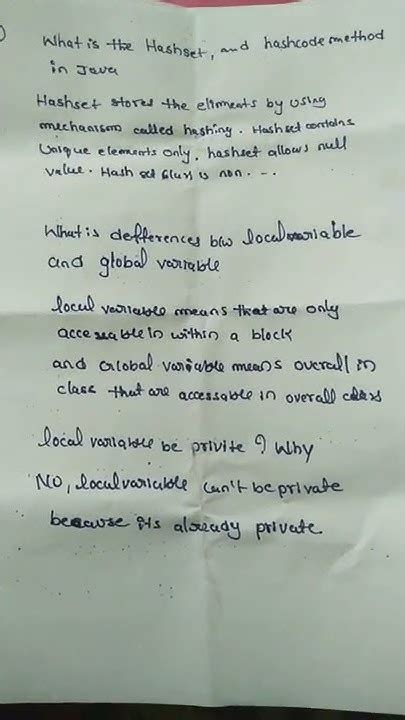 What is the Hashset, and hashcode method
in Java
Hashset stores the eliments by using
mechanism called hashing. Hashset contains
Unique elements only. hashset allows null
value. Hash set class is non. - -
What is defferences b/w local variable
and global variable
local variable means that are only
accessable in within a block
and Global variable means overall in
class that are accessable in overall class
local variable be privite ? Why
NO, local variable can't be private
because its already private.